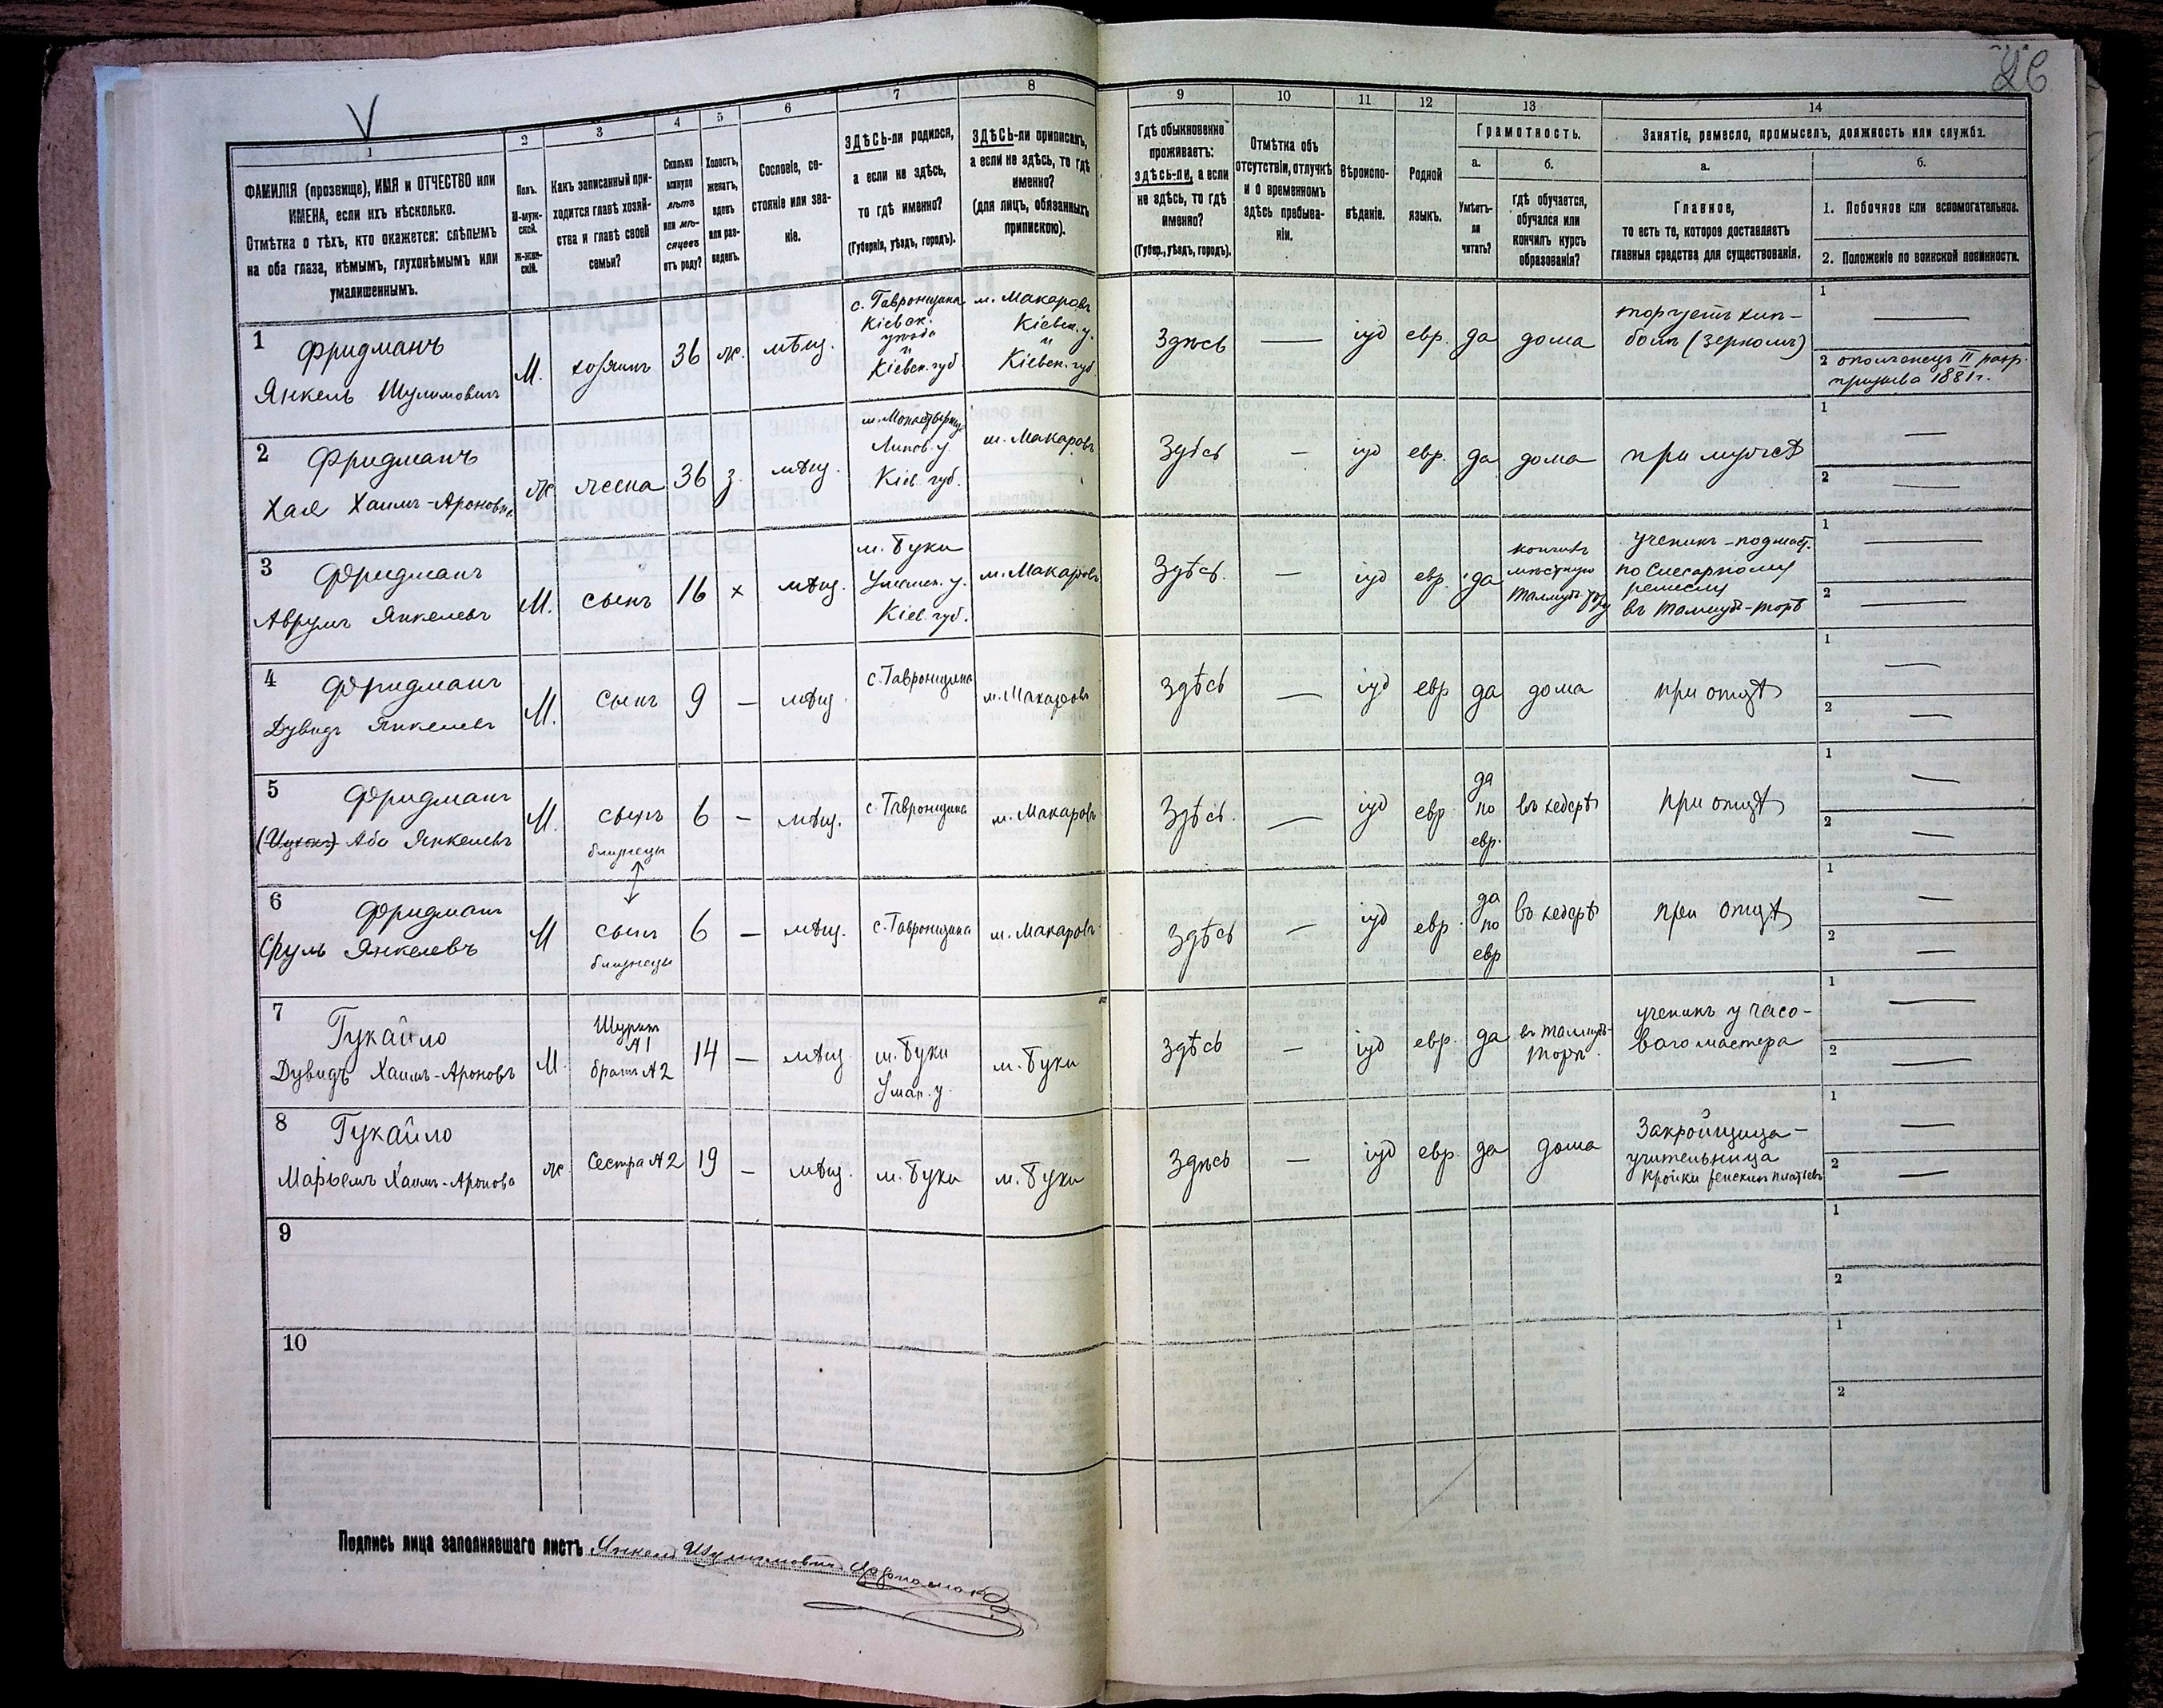 26
V
1
2
3
4
5
6
7
8
9
10
11
12
13
14
ФАМИЛІЯ (прозвище), ИМЯ и ОТЧЕСТВО или
ИМЕНА, если ихъ нѣсколько.
Отмѣтка о тѣхъ, кто окажется: слѣпымъ
на оба глаза, нѣмымъ, глухонѣмымъ или
умалишеннымъ.
Полъ.
М-муж-
ской.
Ж-жен-
скій.
Какъ записанный при-
ходится главѣ хозяй-
ства и главѣ своей
семьи?
Сколько
минуло
лѣтъ
или мѣ-
сяцевъ
отъ роду?
Холостъ,
женатъ,
вдовъ
или раз-
веденъ.
Сословіе, со-
стояніе или зва-
ніе.
ЗДѢСЬ-ли родился,
а если не здѣсь,
то гдѣ именно?
(Губернія, уѣздъ, городъ).
ЗДѢСЬ-ли приписанъ,
а если не здѣсь, то гдѣ
именно?
(для лицъ, обязанныхъ
припискою).
Гдѣ обыкновенно
проживаетъ:
здѣсь-ли, а если
не здѣсь, то гдѣ
именно?
(Губер., уѣздъ, городъ).
Отмѣтка объ
отсутствіи, отлучкѣ
и о временномъ
здѣсь пребыва-
ніи.
Вѣроиспо-
вѣданіе.
Родной
языкъ.
Грамотность.
а.
Умѣетъ-
ли
читать?
б.
гдѣ обучается,
обучался или
кончилъ курсъ
образованія?
Занятіе, ремесло, промыселъ, должность или служба.
а.
Главное,
то есть то, которое доставляетъ
главныя средства для существованія.
б.
1. Побочное или вспомогательное.
2. Положеніе по воинской повинности.
1
Фридманъ
Янкель Шулимовичъ
М.
хозяинъ
36
ж.
мѣщ.
с. Гавронщина
Кіевск.
уѣзда
и
Кіевск. губ
м. Макаровъ
Кіевск. у.
и
Кіевск. губ.
Здѣсь
—
іуд
евр.
да
дома
торгуетъ хлѣ-
бомъ (зерномъ)
1 —
2 ополченецъ II разр.
призыва 1881 г.
2
Фридманъ
Хая Хаимъ-Ароновна
ж
жена
36
з.
мѣщ.
м. Монастырище
Липов. у.
Кіев. губ.
м. Макаровъ
Здѣсь
—
іуд
евр.
да
дома
при мужѣ
1 —
2 —
3
Фридманъ
Аврумъ Янкелевъ
М.
сынъ
16
х
мѣщ.
м. Буки
Уманск. у.
Кіев. губ.
м. Макаровъ
Здѣсь.
—
іуд
евр.
да
кончилъ
мѣстную
Талмудъ-Тору
ученикъ-подмаст.
по слесарному
ремеслу
въ Талмудъ-торѣ
1 —
2 —
4
Фридманъ
Дувидъ Янкелевъ
М.
сынъ
9
—
мѣщ.
с. Гавронщина
м. Макаровъ
здѣсь
—
іуд
евр
да
дома
при отцѣ
1 —
2 —
5
Фридманъ
(Ицхокъ) Аба Янкелевъ
М.
сынъ
близнецы
6
—
мѣщ.
с. Гавронщина
м. Макаровъ
Здѣсь.
—
іуд
евр
да
по
евр.
въ хедерѣ
при отцѣ
1 —
2 —
6
Фридманъ
Сруль Янкелевъ
М
сынъ
близнецы
6
—
мѣщ.
с. Гавронщина
м. Макаровъ
Здѣсь
—
іуд
евр.
да
по
евр
въ хедерѣ
при отцѣ
1 —
2 —
7
Гукайло
Дувидъ Хаимъ-Ароновъ
М.
Шуринъ
№1
братъ №2
14
—
мѣщ
м. Буки
Уман. у.
м. Буки
здѣсь
—
іуд
евр.
да
въ Талмудъ-
Торѣ.
ученикъ у часо-
вого мастера
1 —
2 —
8
Гукайло
Марьемъ Хаимъ-Аронова
ж
Сестра №2
19
—
мѣщ.
м. Буки
м. Буки
Здѣсь
—
іуд
евр.
да
дома
Закройщица-
учительница
кройки женскихъ платьевъ
1 —
2 —
9
1
2
10
1
2
Подпись лица заполнявшаго листъ Янкель Шулимовичъ